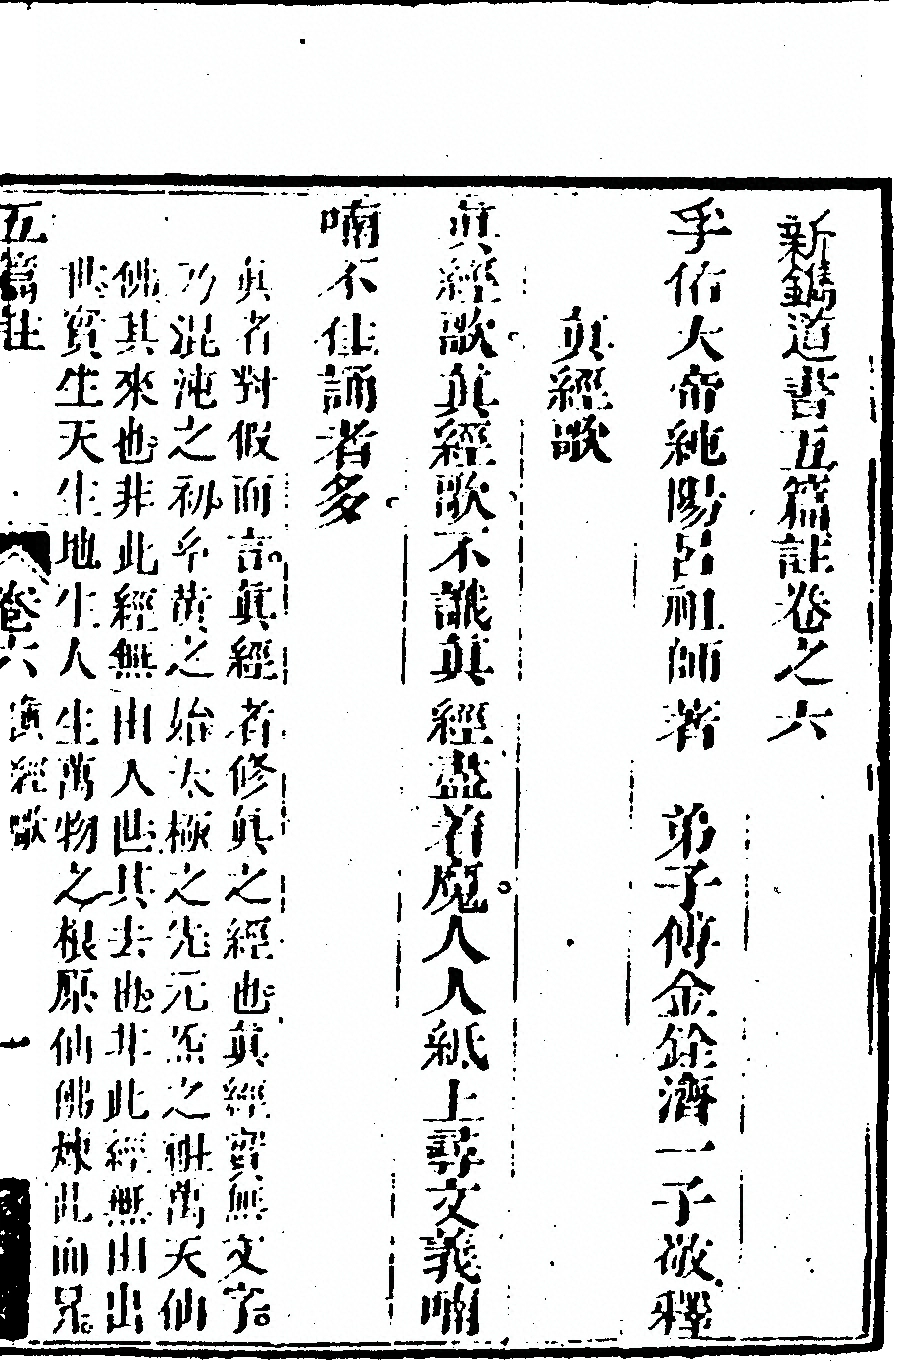 新鐫道書五篇註卷之六
孚佑大帝純陽呂祖師著　弟子傅金銓濟一子敬釋
眞經歌
眞經歌眞經歌不識眞經盡着魔人人紙上尋文義喃
喃不住誦者多
眞者對假而言眞經者修眞之經也眞經實無文字
乃混沌之初兮黃之始太極之先元炁之祖萬天仙
佛其來也非此經無由入世其去也非此經無由出
世實生天生地生人生萬物之根原仙佛煉此而成
五篇註　卷六　眞經歌　一